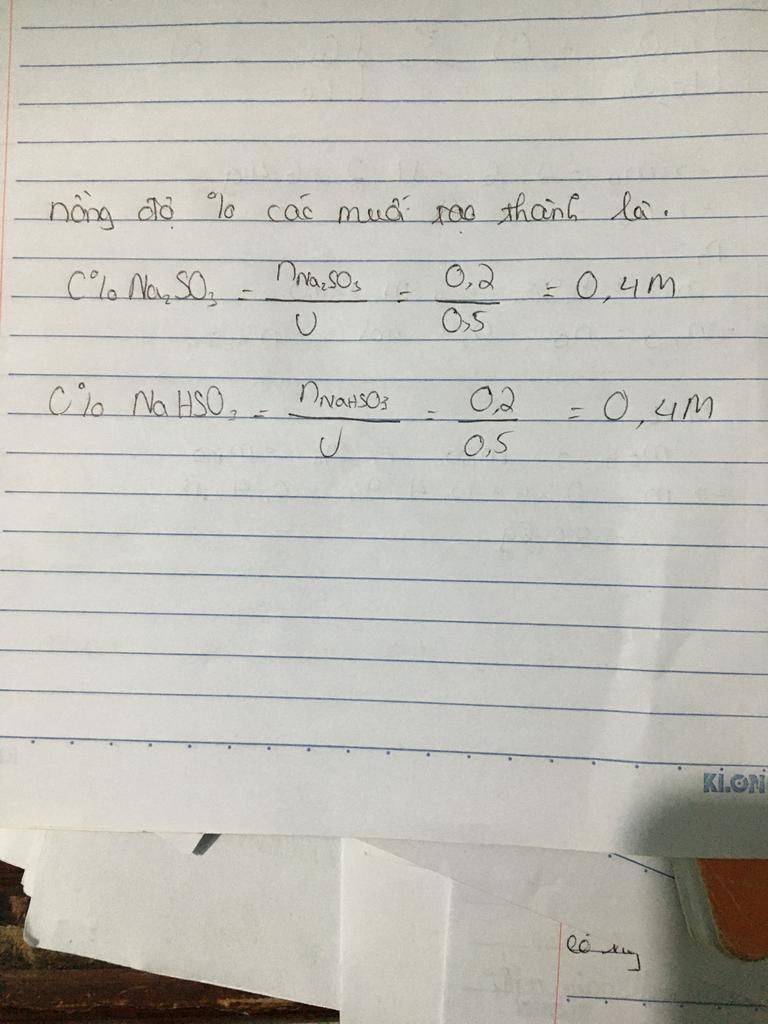 nồng độ % các muối tạo thành là.
C% Na₂SO₃ = nNa₂SO₃ / V = 0,2 / 0,5 = 0,4M
C% NaHSO₃ = nNaHSO₃ / V = 0,2 / 0,5 = 0,4M
KI.ON